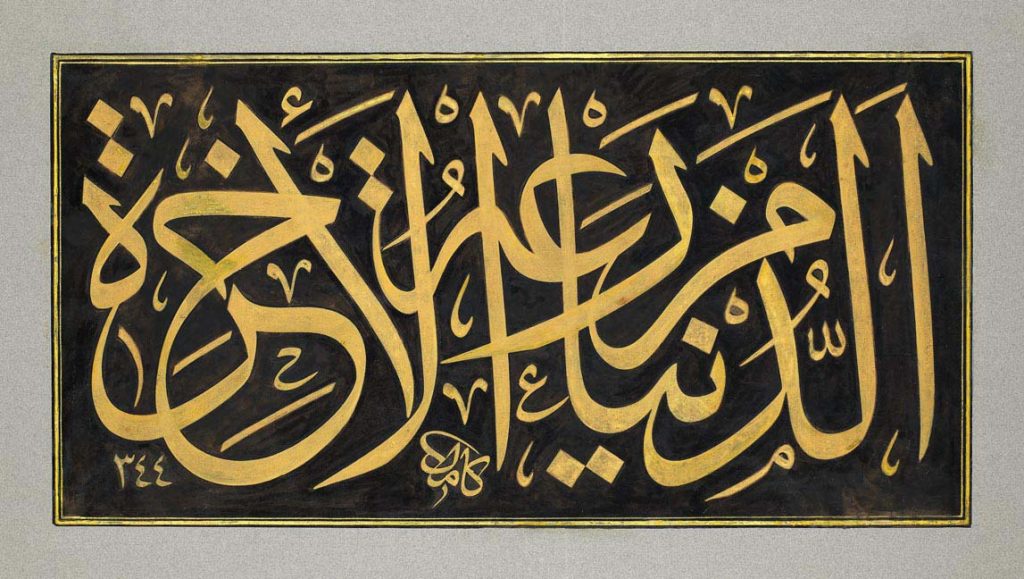 الدُّنْيَا مَزْرَعَةُ الْأٰخِرَةِ
كامل
٣٤٤